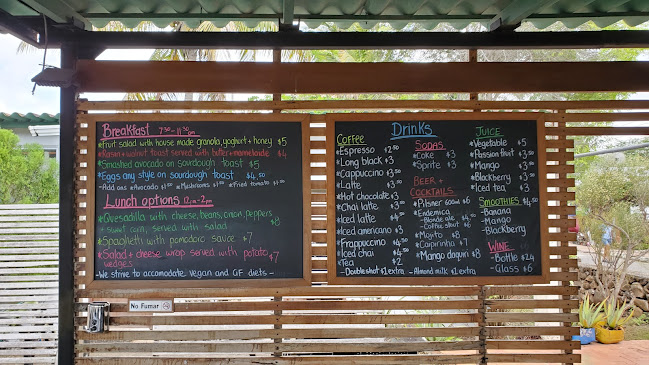 Breakfast 7:30-11:30am
*Fruit salad with house made granola, yoghurt + honey $5
*Raisen + walnut toast served with butter + marmelade $4
*Smashed avocado on sourdough toast $5
*Eggs any style on sourdough toast $4.50
*Add ons *Avocado $1.50 *Mushrooms $1.50 *Fried tomato $1.50
Lunch options 12pm-2pm
*Quesadilla with cheese, beans, onion, peppers
+ sweet corn, served with salad $8
*Spaghetti with pomodoro sauce $7
*Salad + cheese wrap served with potato
wedges $7
- We strive to accomodate vegan and GF diets -
No Fumar
Drinks
COFFEE
*Espresso $2.50
*Long black $3
*Cappuccino $3
*Latte $3
*Hot chocolate $3
*Chai latte $3
*Iced latte $4
*Iced americano $3
*Frappuccino $4.50
*Iced chai $4
*Tea $2
- Double shot $1 extra - Almond milk $1 extra
SODAS
*Coke $3
*Sprite $3
BEER +
COCKTAILS
*Pilsner 600ml $6
*Endemica
- Blonde ale $4.50
- Coffee stout $6
*Mojito $8
*Caipirinha $7
*Mango daquiri $8
JUICE
*Vegetable $5
*Passion fruit $3
*Mango $3
*Blackberry $3
*Iced tea $3
SMOOTHIES $4.50
- Banana
- Mango
- Blackberry
WINE
- Bottle $24
- Glass $6